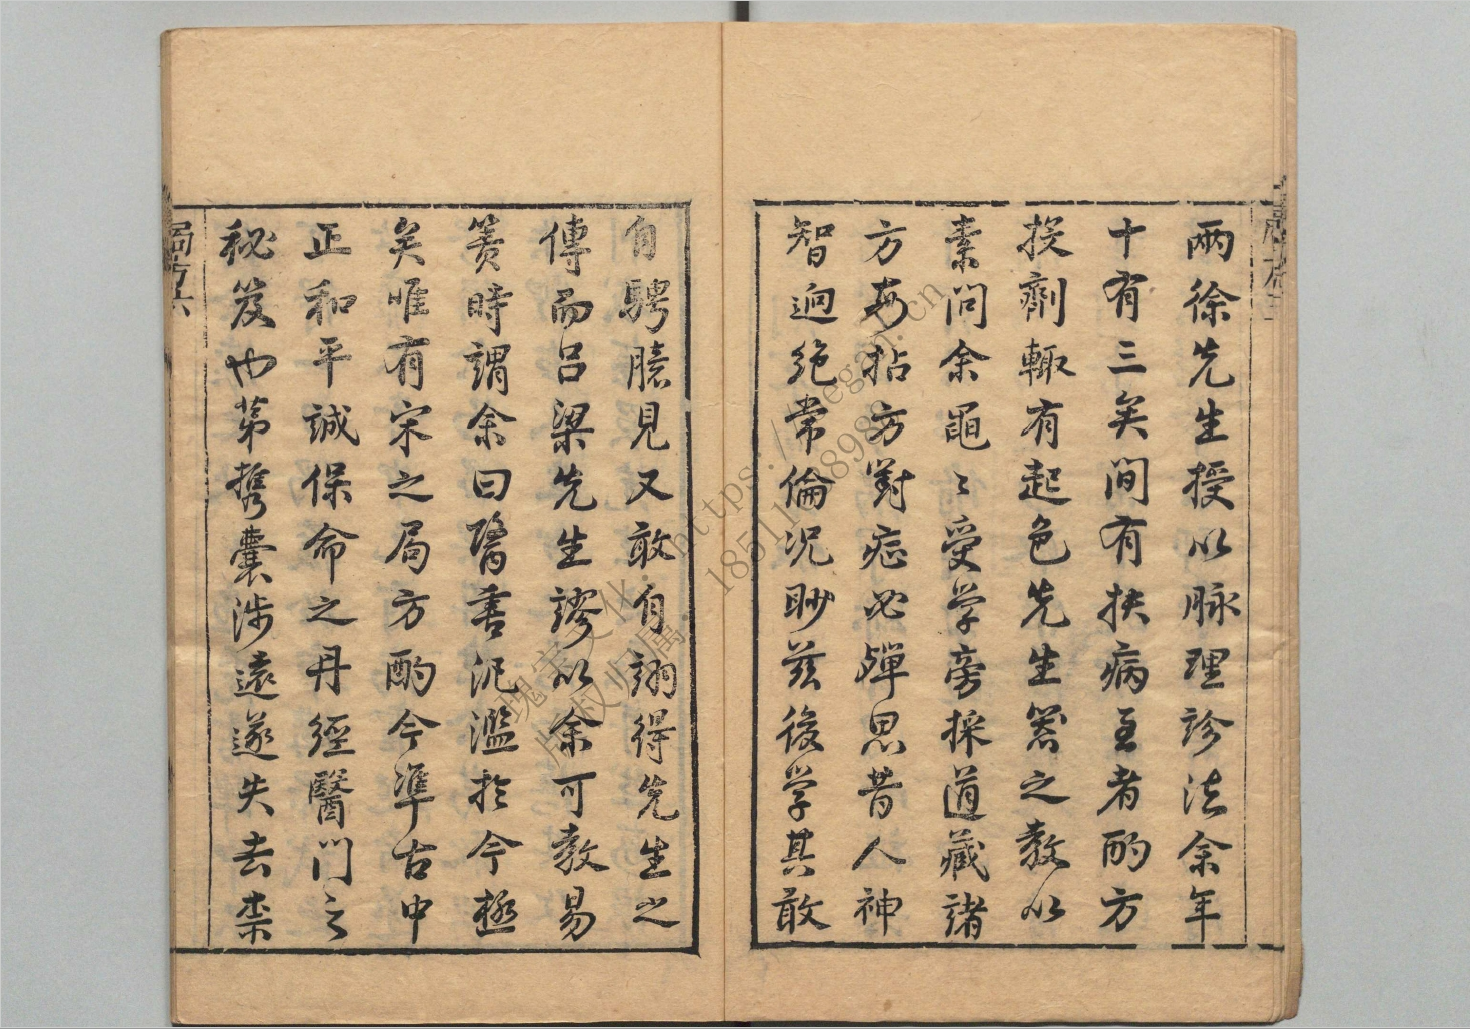 兩徐先生授以脉理診法余年
十有三矣間有扶病至者酌方
投劑輙有起色先生善之教以
素問余黽〻受學旁採道藏諸
方每拈方對症必殫思昔人神
智迥絶常倫況眇茲後學其敢
自騁臆見又敢自詡得先生之
傳而呂梁先生謬以余可教易
簀時謂余曰醫書汜濫於今極
矣唯有宋之局方酌今準古中
正和平誠保命之丹經醫門之
秘笈也苐携囊涉遠遂失去柰